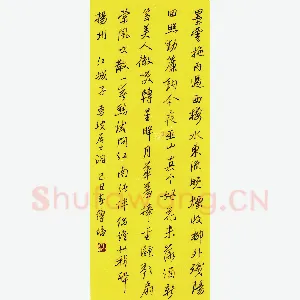 墨雲拖雨過西樓水東流晚煙收柳外殘陽
回照動簾鉤今夜巫山真个好花未落酒新
篘美人微笑轉星眸月花羞捧金甌歌扇
縈風吹散一春愁試問江南諸伴侶誰似我醉
揚州 江城子 東坡居士詞 己丑
Shufawang.CN